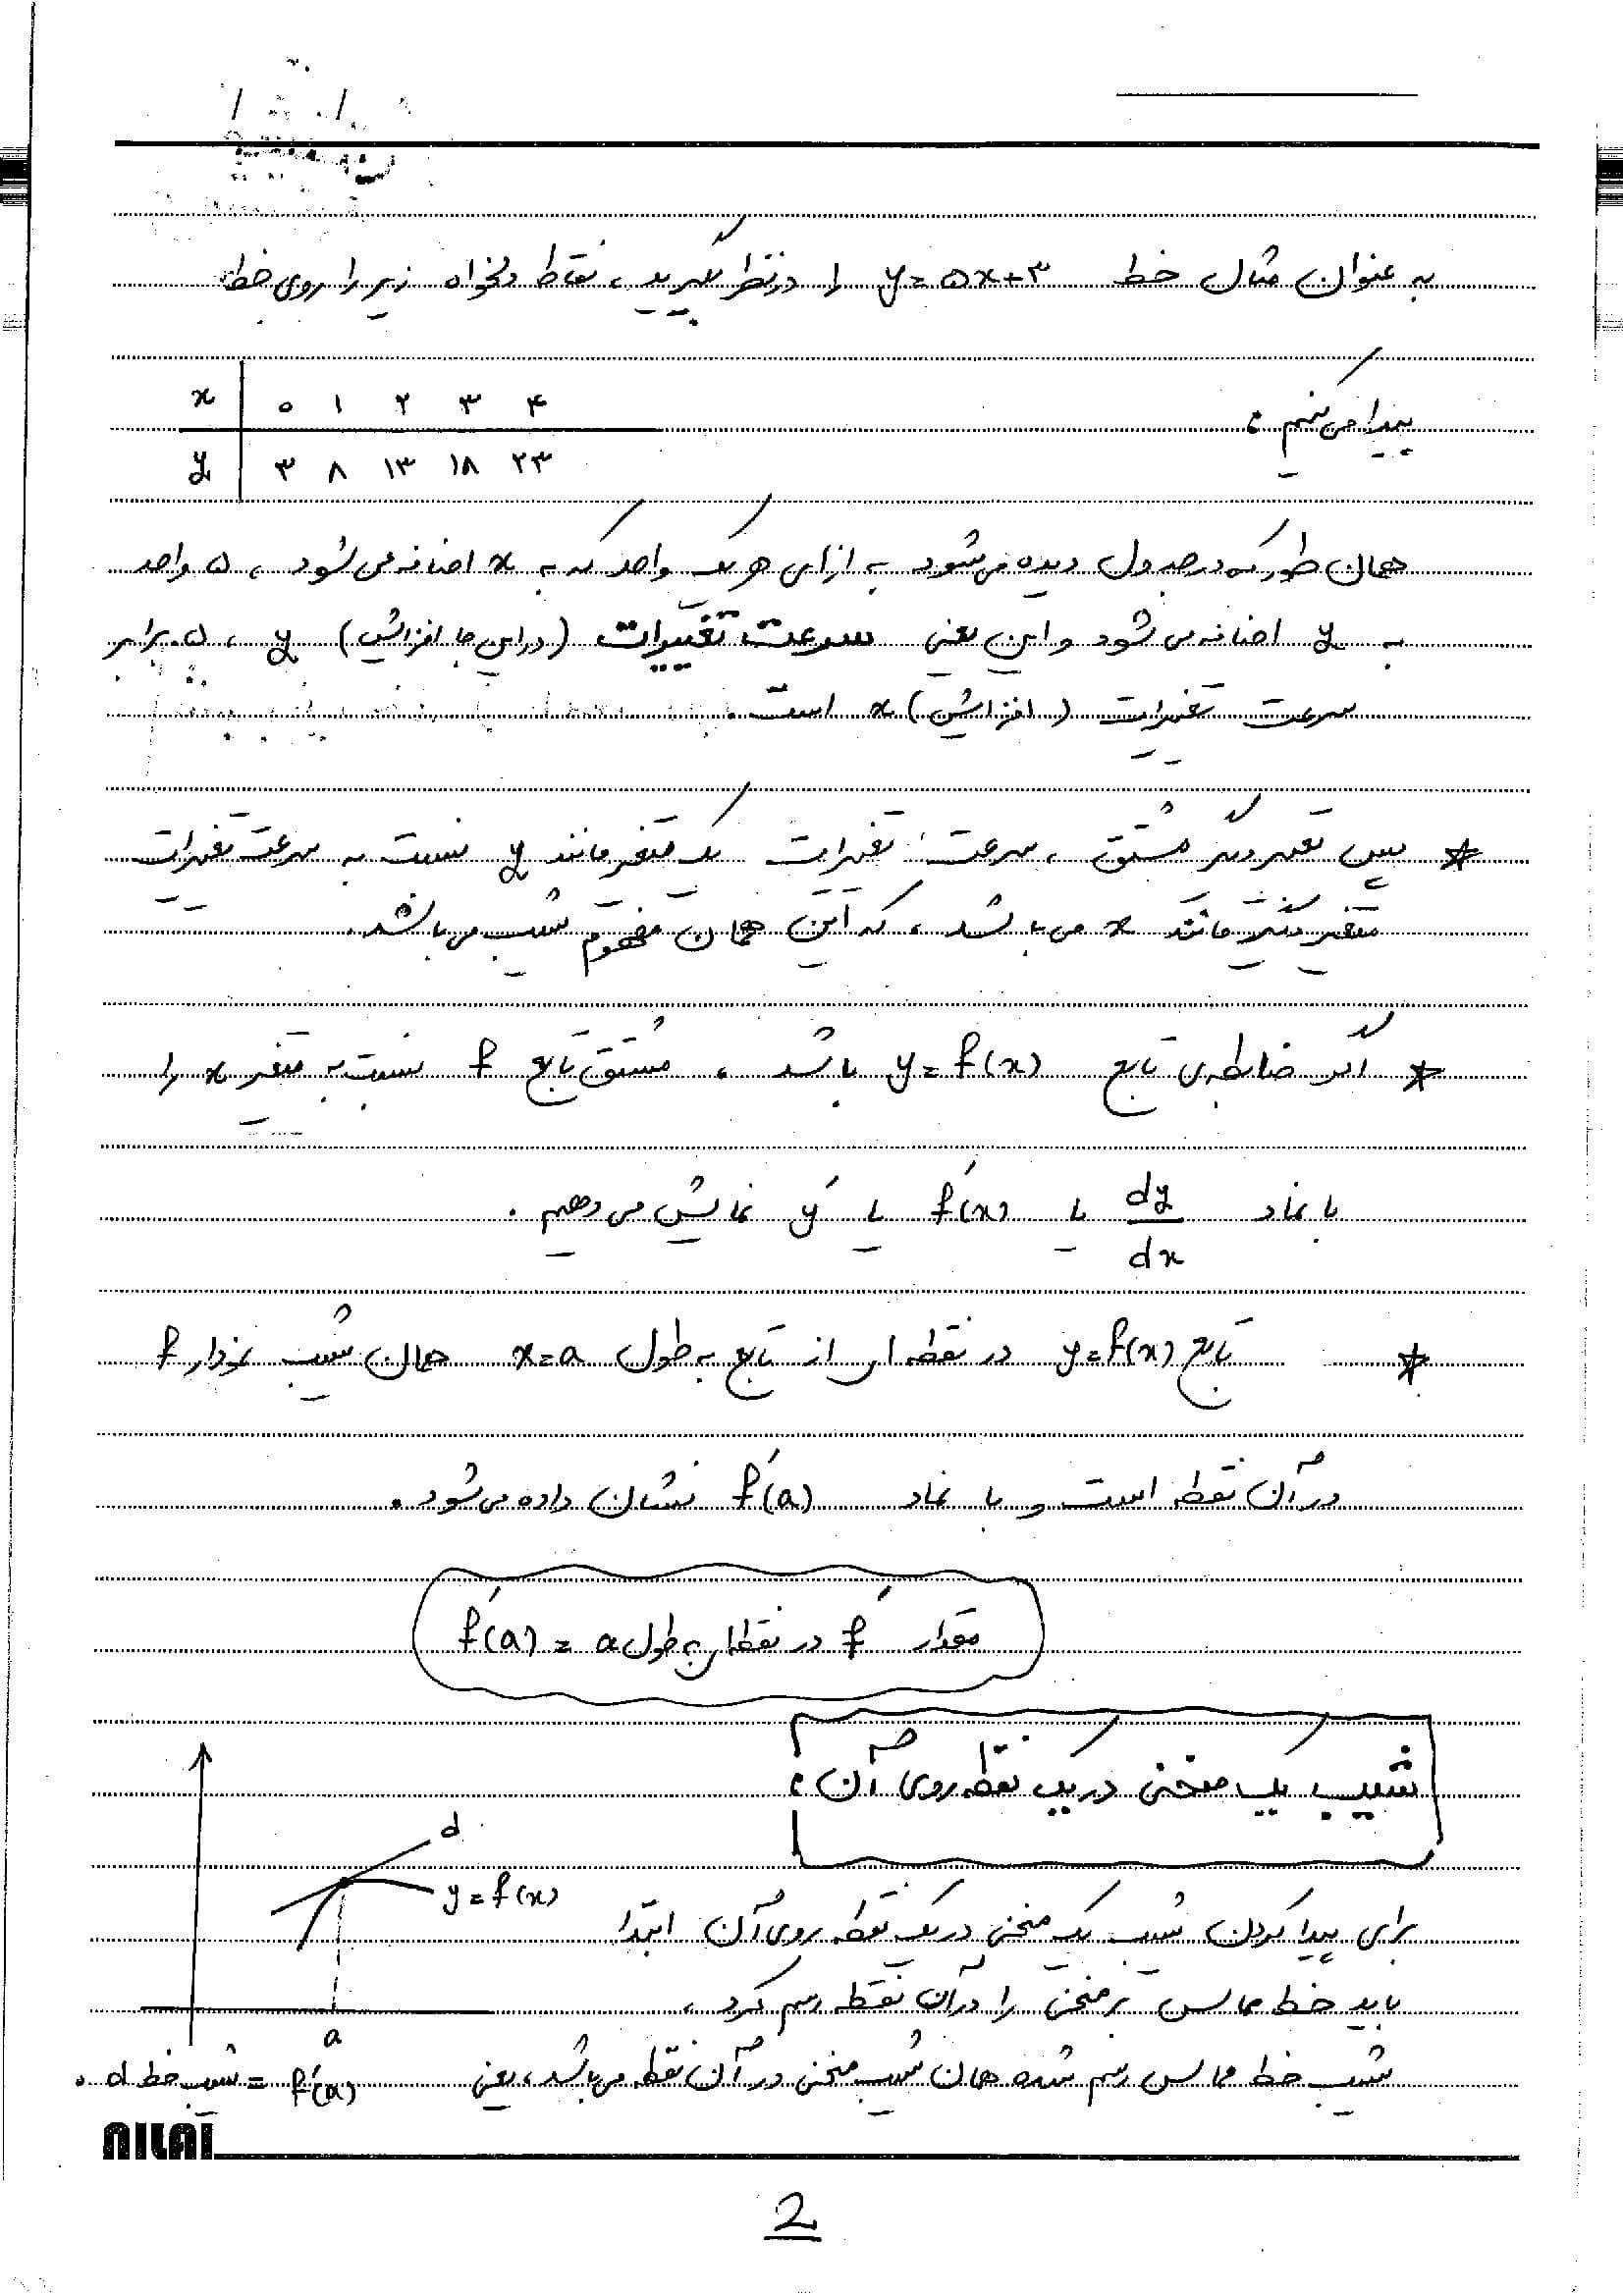 به عنوان مثال خط y = ۵x+۳ را در نظر بگیرید ، نقاط دلخواه زیر را روی خط
پیدا می کنیم :
x | ۰ ۱ ۲ ۳ ۴
y | ۳ ۸ ۱۳ ۱۸ ۲۳
همان طور که در جدول دیده می شود به ازای هر یک واحد که به x اضافه می شود ، ۵ واحد
به y اضافه می شود و این یعنی سرعت تغییرات (در این جا افزایش) y ، ۵ برابر
سرعت تغییرات (افزایش) x است .
* پس تعبیر دیگر مشتق ، سرعت تغییرات یک متغیر مانند y نسبت به سرعت تغییرات
متغیر دیگر مانند x می باشد ، که این همان مفهوم شیب می باشد .
* اگر ضابطه ی تابع y = f(x) باشد ، مشتق تابع f نسبت به متغیر x را
با نماد dy/dx یا f′(x) یا y′ نمایش می دهیم .
* تابع y = f(x) در نقطه ای از تابع به طول x = a همان شیب نمودار f
در آن نقطه است و با نماد f′(a) نشان داده می شود .
مقدار f′ در نقطه ای به طول a = f′(a)
شیب یک منحنی در یک نقطه روی آن :
d
y = f(x)
a
برای پیدا کردن شیب یک منحنی در یک نقطه روی آن ابتدا
باید خط مماس بر منحنی را در آن نقطه رسم کرد ،
شیب خط مماس رسم شده همان شیب منحنی در آن نقطه می باشد ، یعنی f′(a) = شیب خط d .
NILAI
2